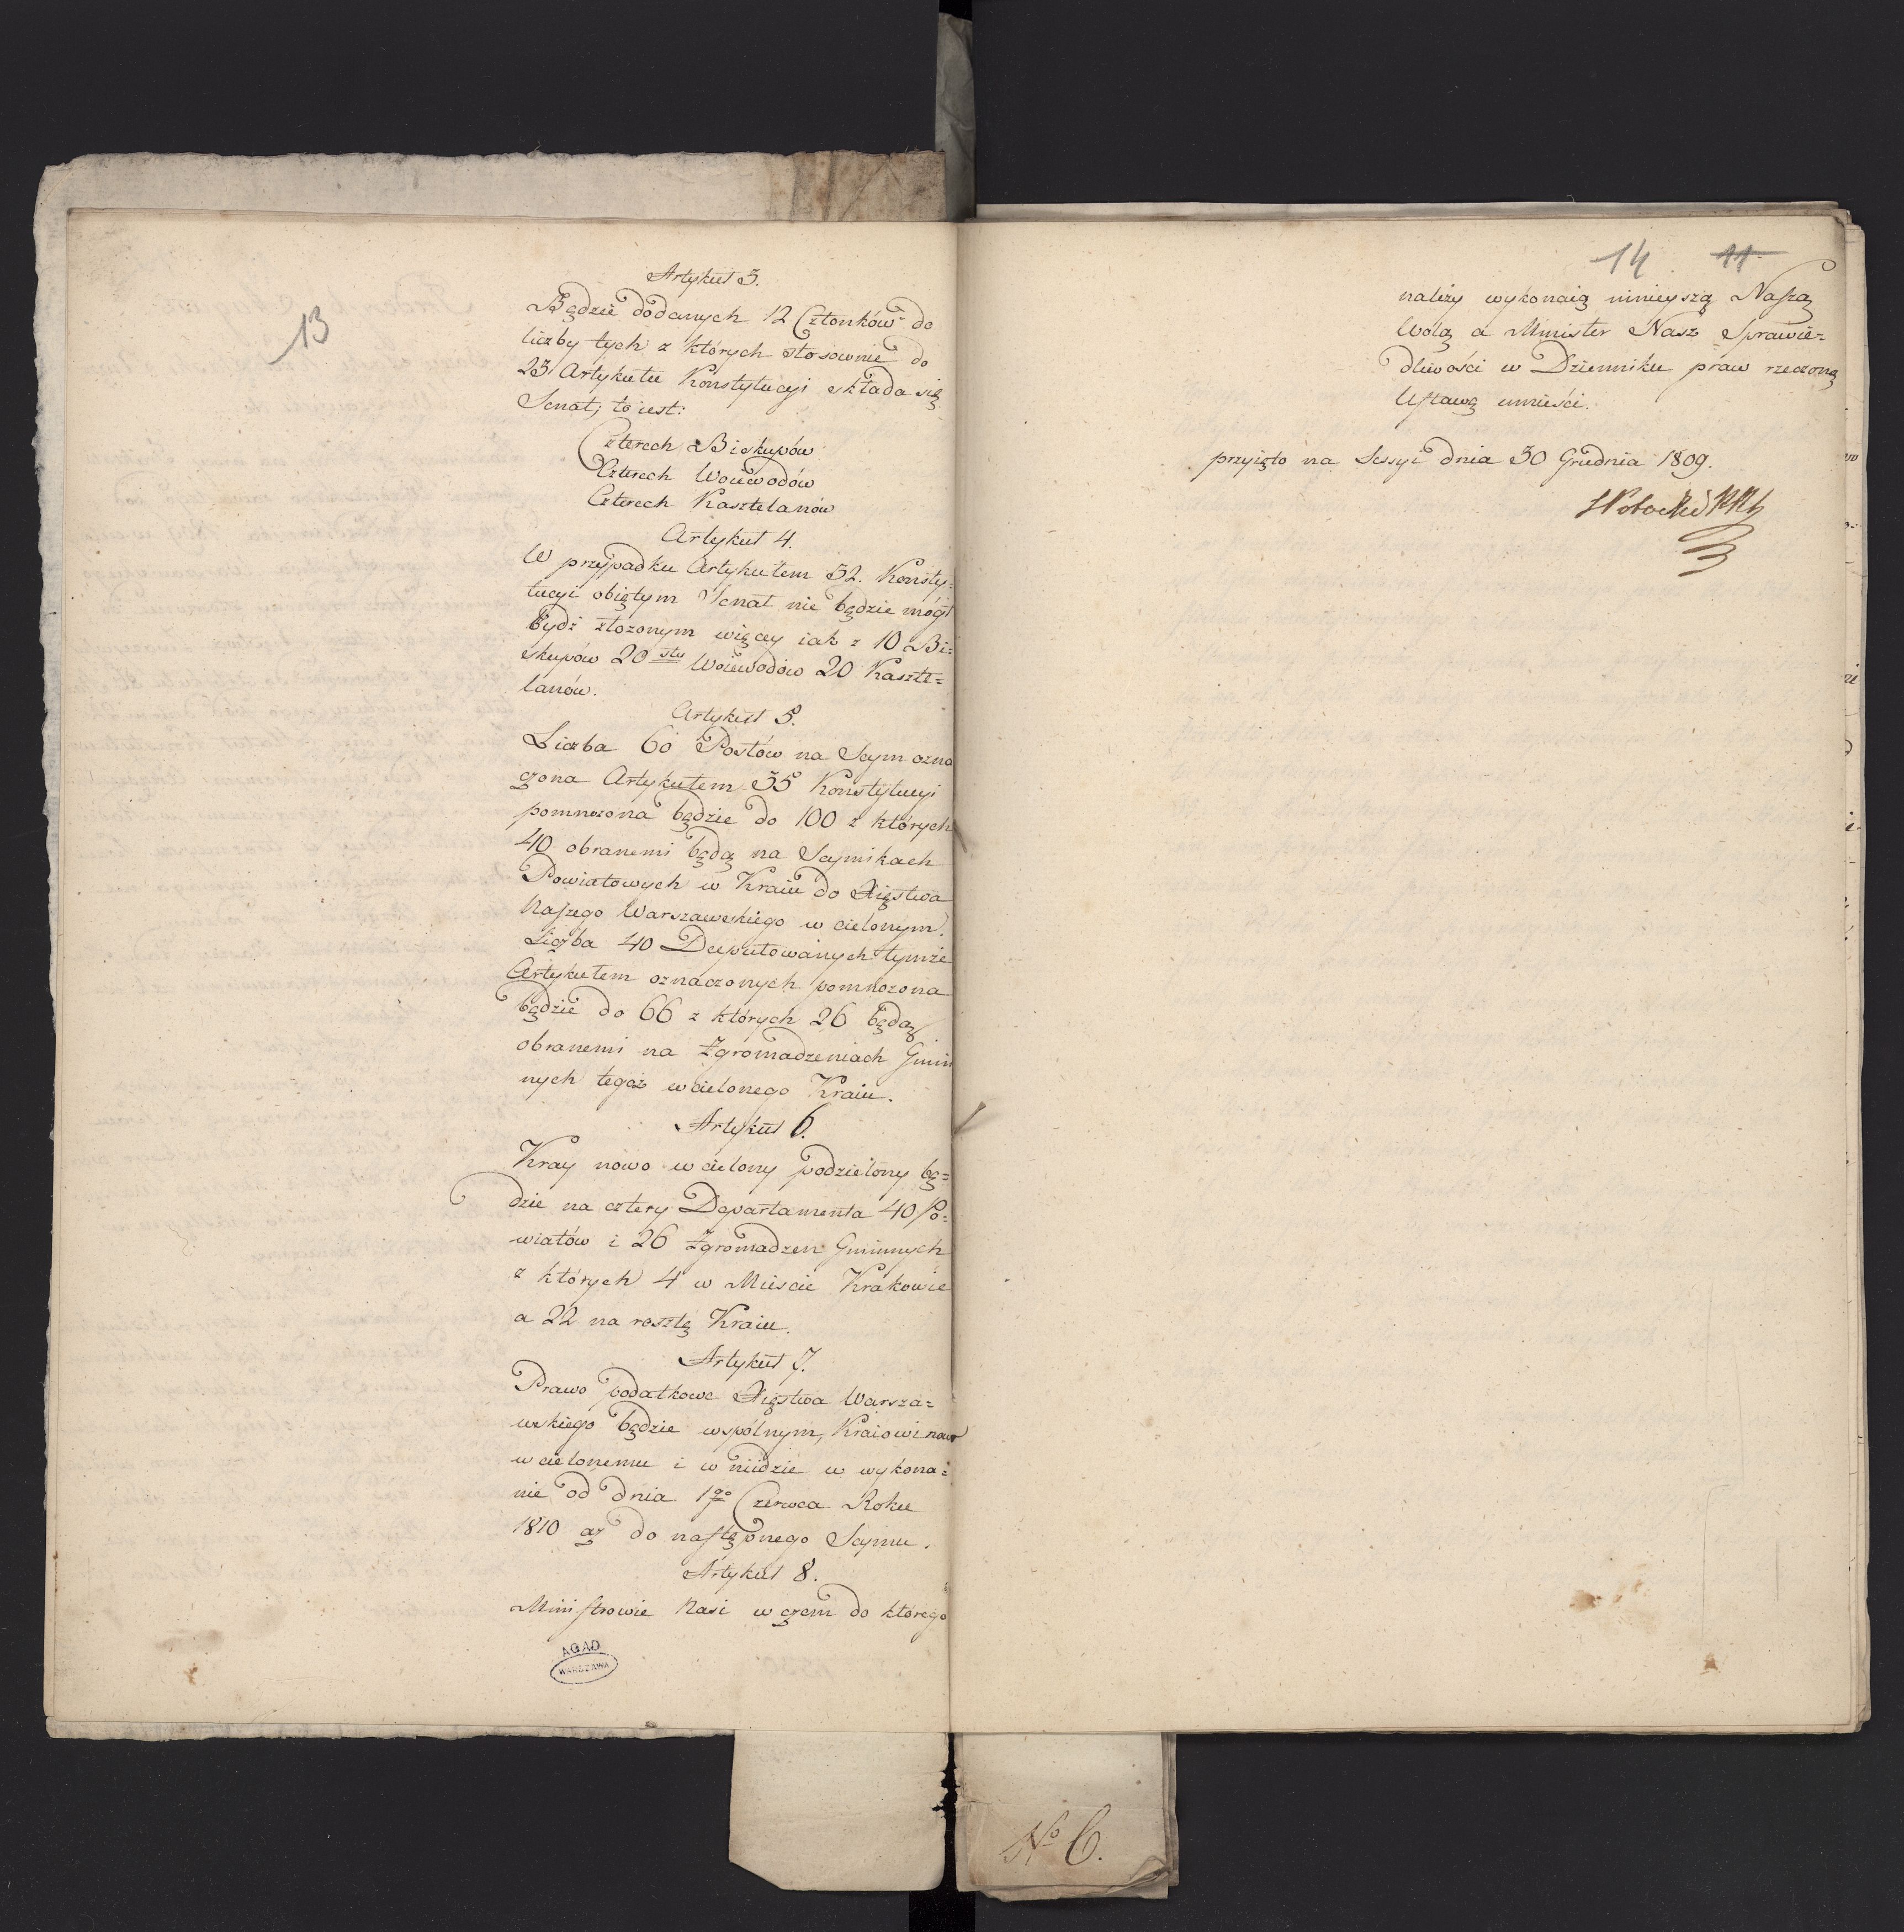 13
Artykuł 3.
Będzie dodanych 12 Członków do
liczby tych z których stosownie do
23 Artykułu Konstytucyi składa się
Senat; to iest:
Czterech Biskupów
Czterech Woiewodów
Czterech Kasztelanów
Artykuł 4.
W przypadku Artykułem 32. Konsty=
tucyi obiętym Senat nie będzie mógł
bydź złożonym więcey iak z 10 Bi=
skupów 20stu Woiewodów 20 Kaszte=
lanów.
Artykuł 5.
Liczba 60 Posłów na Seym ozna
czona Artykułem 35 Konstytucyi
pomnożona będzie do 100 z których
40 obranemi będą na Seymikach
Powiatowych w Kraiu do Xięstwa
Naszego Warszawskiego wcielonym.
Liczba 40 Deputowanych tymże
Artykułem oznaczonych pomnożona
będzie do 66 z których 26 będą
obranemi na Zgromadzeniach Gmin
nych tegoż wcielonego Kraiu.
Artykuł 6.
Kray nowo wcielony podzielony bę=
dzie na cztery Departamenta 40 Po=
wiatów i 26 Zgromadzeń Gminnych
z których 4 w Mieście Krakowie
a 22 na resztę Kraiu.
Artykuł 7.
Prawo podatkowe Xięstwa Warsza=
wskiego będzie wspólnym, Kraiowi nowo
wcielonemu i wniidzie w wykona=
nie od dnia 1go Czerwca Roku
1810 aż do następnego Seymu.
Artykuł 8.
Ministrowie Nasi w czem do którego
AGAD
WARSZAWA
14 11
należy wykonaią ninieyszą Naszą
Wolą a Minister Nasz Sprawie=
dliwości w Dzienniku praw rzeczoną
Ustawę umieści.
przyięto na Sessyi dnia 30 Grudnia 1809.
SPotocki
No 6.